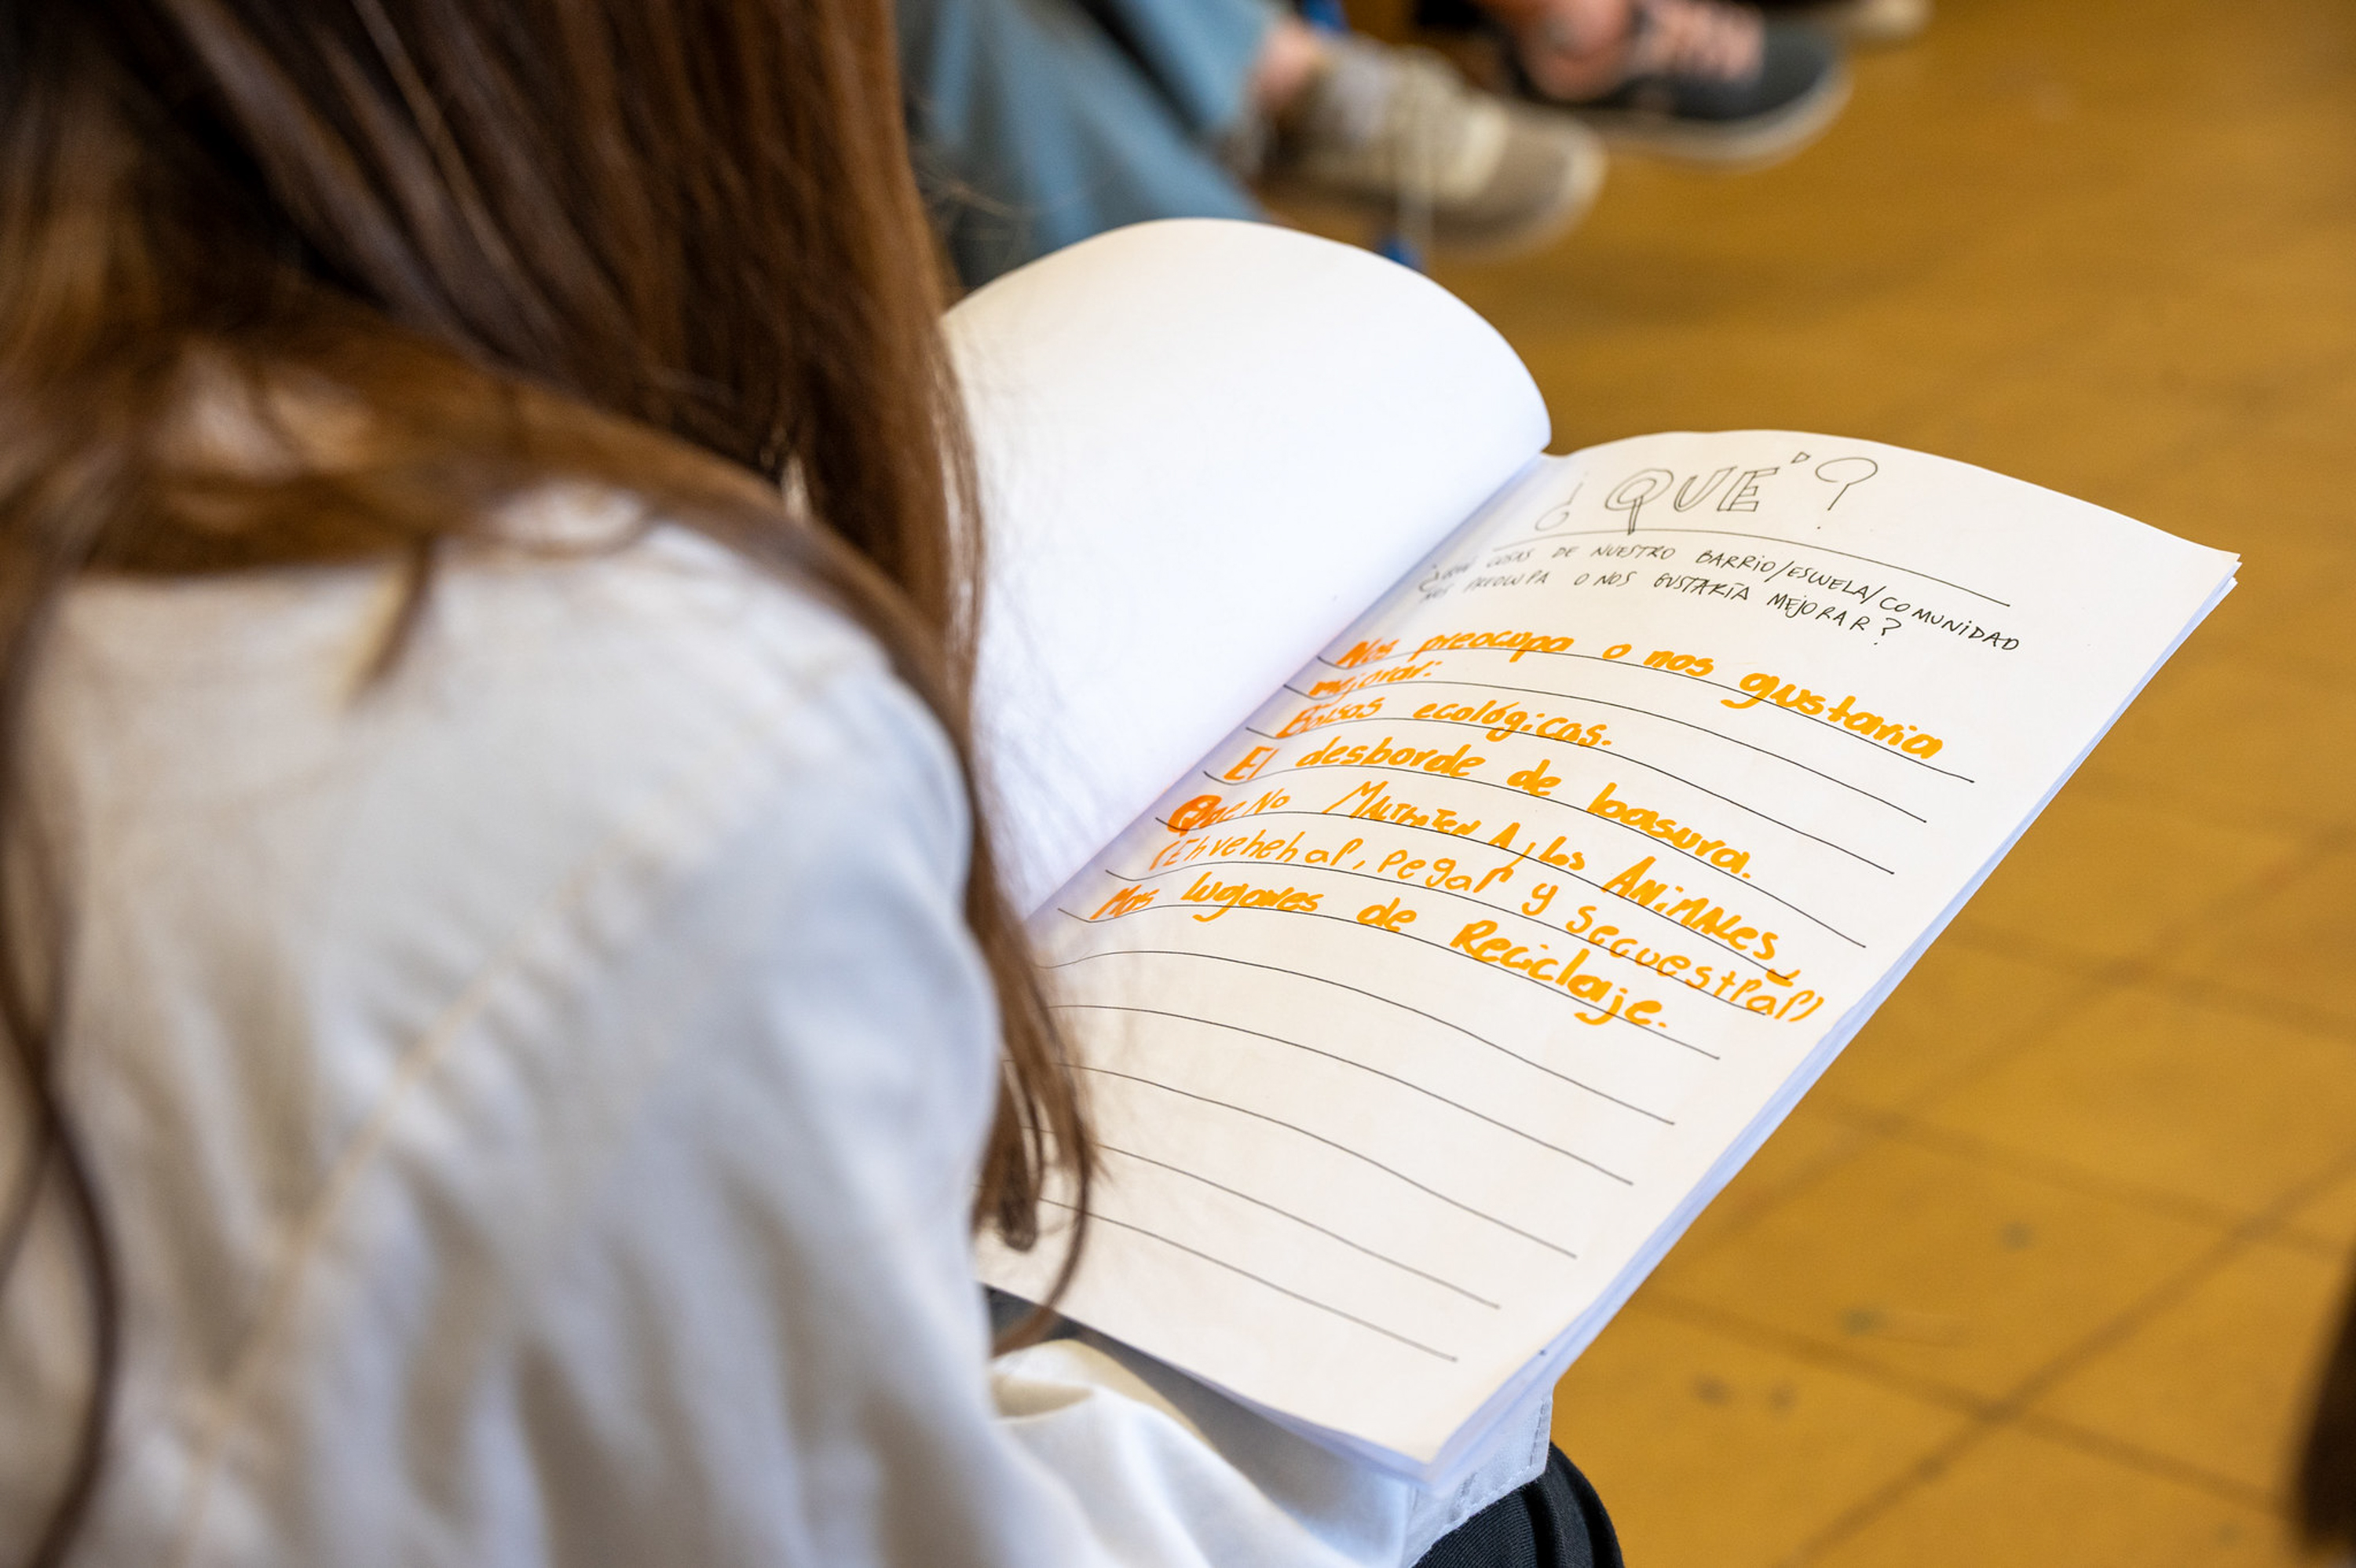 ¿QUÉ?
¿QUÉ COSAS DE NUESTRO BARRIO/ESCUELA/COMUNIDAD
NOS PREOCUPA O NOS GUSTARÍA MEJORAR?
Nos preocupa o nos gustaria
mejorar:
Bolsas ecológicas.
El desborde de basura.
Que No MALTRATEN A los ANiMALes
(Envenenar, pegar y secuestrar)
Mas lugares de Reciclaje.